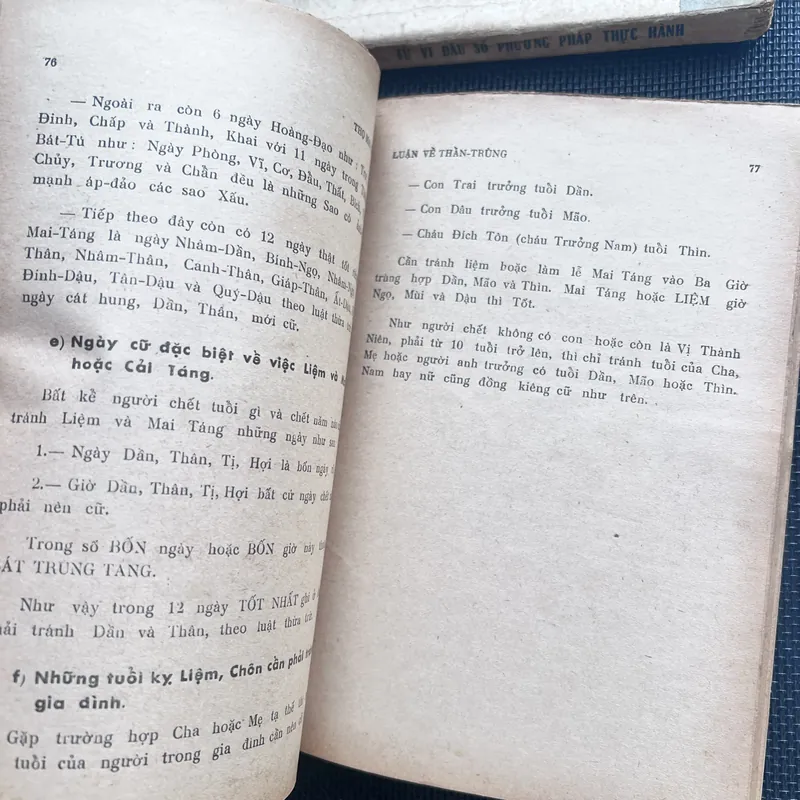 TỬ VI ĐẨU SỐ PHƯƠNG PHÁP THỰC HÀNH
76
— Ngoài ra còn 6 ngày Hoàng-Đạo như :
Đinh, Chấp và Thành, Khai với 11 ngày trong
Bát-Tú như : Ngày Phòng, Vĩ, Cơ, Đẩu, Thất, Bích,
Chủy, Trương và Chẩn đều là những Sao có
mạnh áp-đảo các sao Xấu.
— Tiếp theo đây còn có 12 ngày thật tốt
Mai-Táng là ngày Nhâm-Dần, Bính-Ngọ,
Thân, Nhâm-Thân, Canh-Thân, Giáp-Thân,
Đinh-Dậu, Tân-Dậu và Quý-Dậu theo luật thừa
ngày cát hung, Dần, Thần, mới cữ.
e) Ngày cữ đặc biệt về việc Liệm và
hoặc Cải Táng.
Bất kể người chết tuổi gì và chết năm
tránh Liệm và Mai Táng những ngày như sau
1.— Ngày Dần, Thân, Tị, Hợi là bốn ngày
2.— Giờ Dần, Thân, Tị, Hợi bất cứ ngày
phải nên cữ.
Trong số BỐN ngày hoặc BỐN giờ này
SÁT TRÙNG TANG.
Như vậy trong 12 ngày TỐT NHẤT ghi ở
phải tránh Dần và Thân, theo luật thừa trừ.
f) Những tuổi kỵ Liệm, Chôn cần phải
gia đình.
Gặp trường hợp Cha hoặc Mẹ tạ thế
tuổi của người trong gia đình cần nên
LUẬN VỀ THẦN-TRÙNG
77
— Con Trai trưởng tuổi Dần.
— Con Dâu trưởng tuổi Mão.
— Cháu Đích Tôn (cháu Trưởng Nam) tuổi Thìn.
Cần tránh liệm hoặc làm lễ Mai Táng vào Ba Giờ
trùng hợp Dần, Mão và Thìn. Mai Táng hoặc LIỆM giờ
Ngọ, Mùi và Dậu thì Tốt.
Như người chết không có con hoặc còn là Vị Thành
Niên, phải từ 10 tuổi trở lên, thì chỉ tránh tuổi của Cha,
Mẹ hoặc người anh trưởng có tuổi Dần, Mão hoặc Thìn.
Nam hay nữ cũng đồng kiêng cữ như trên.